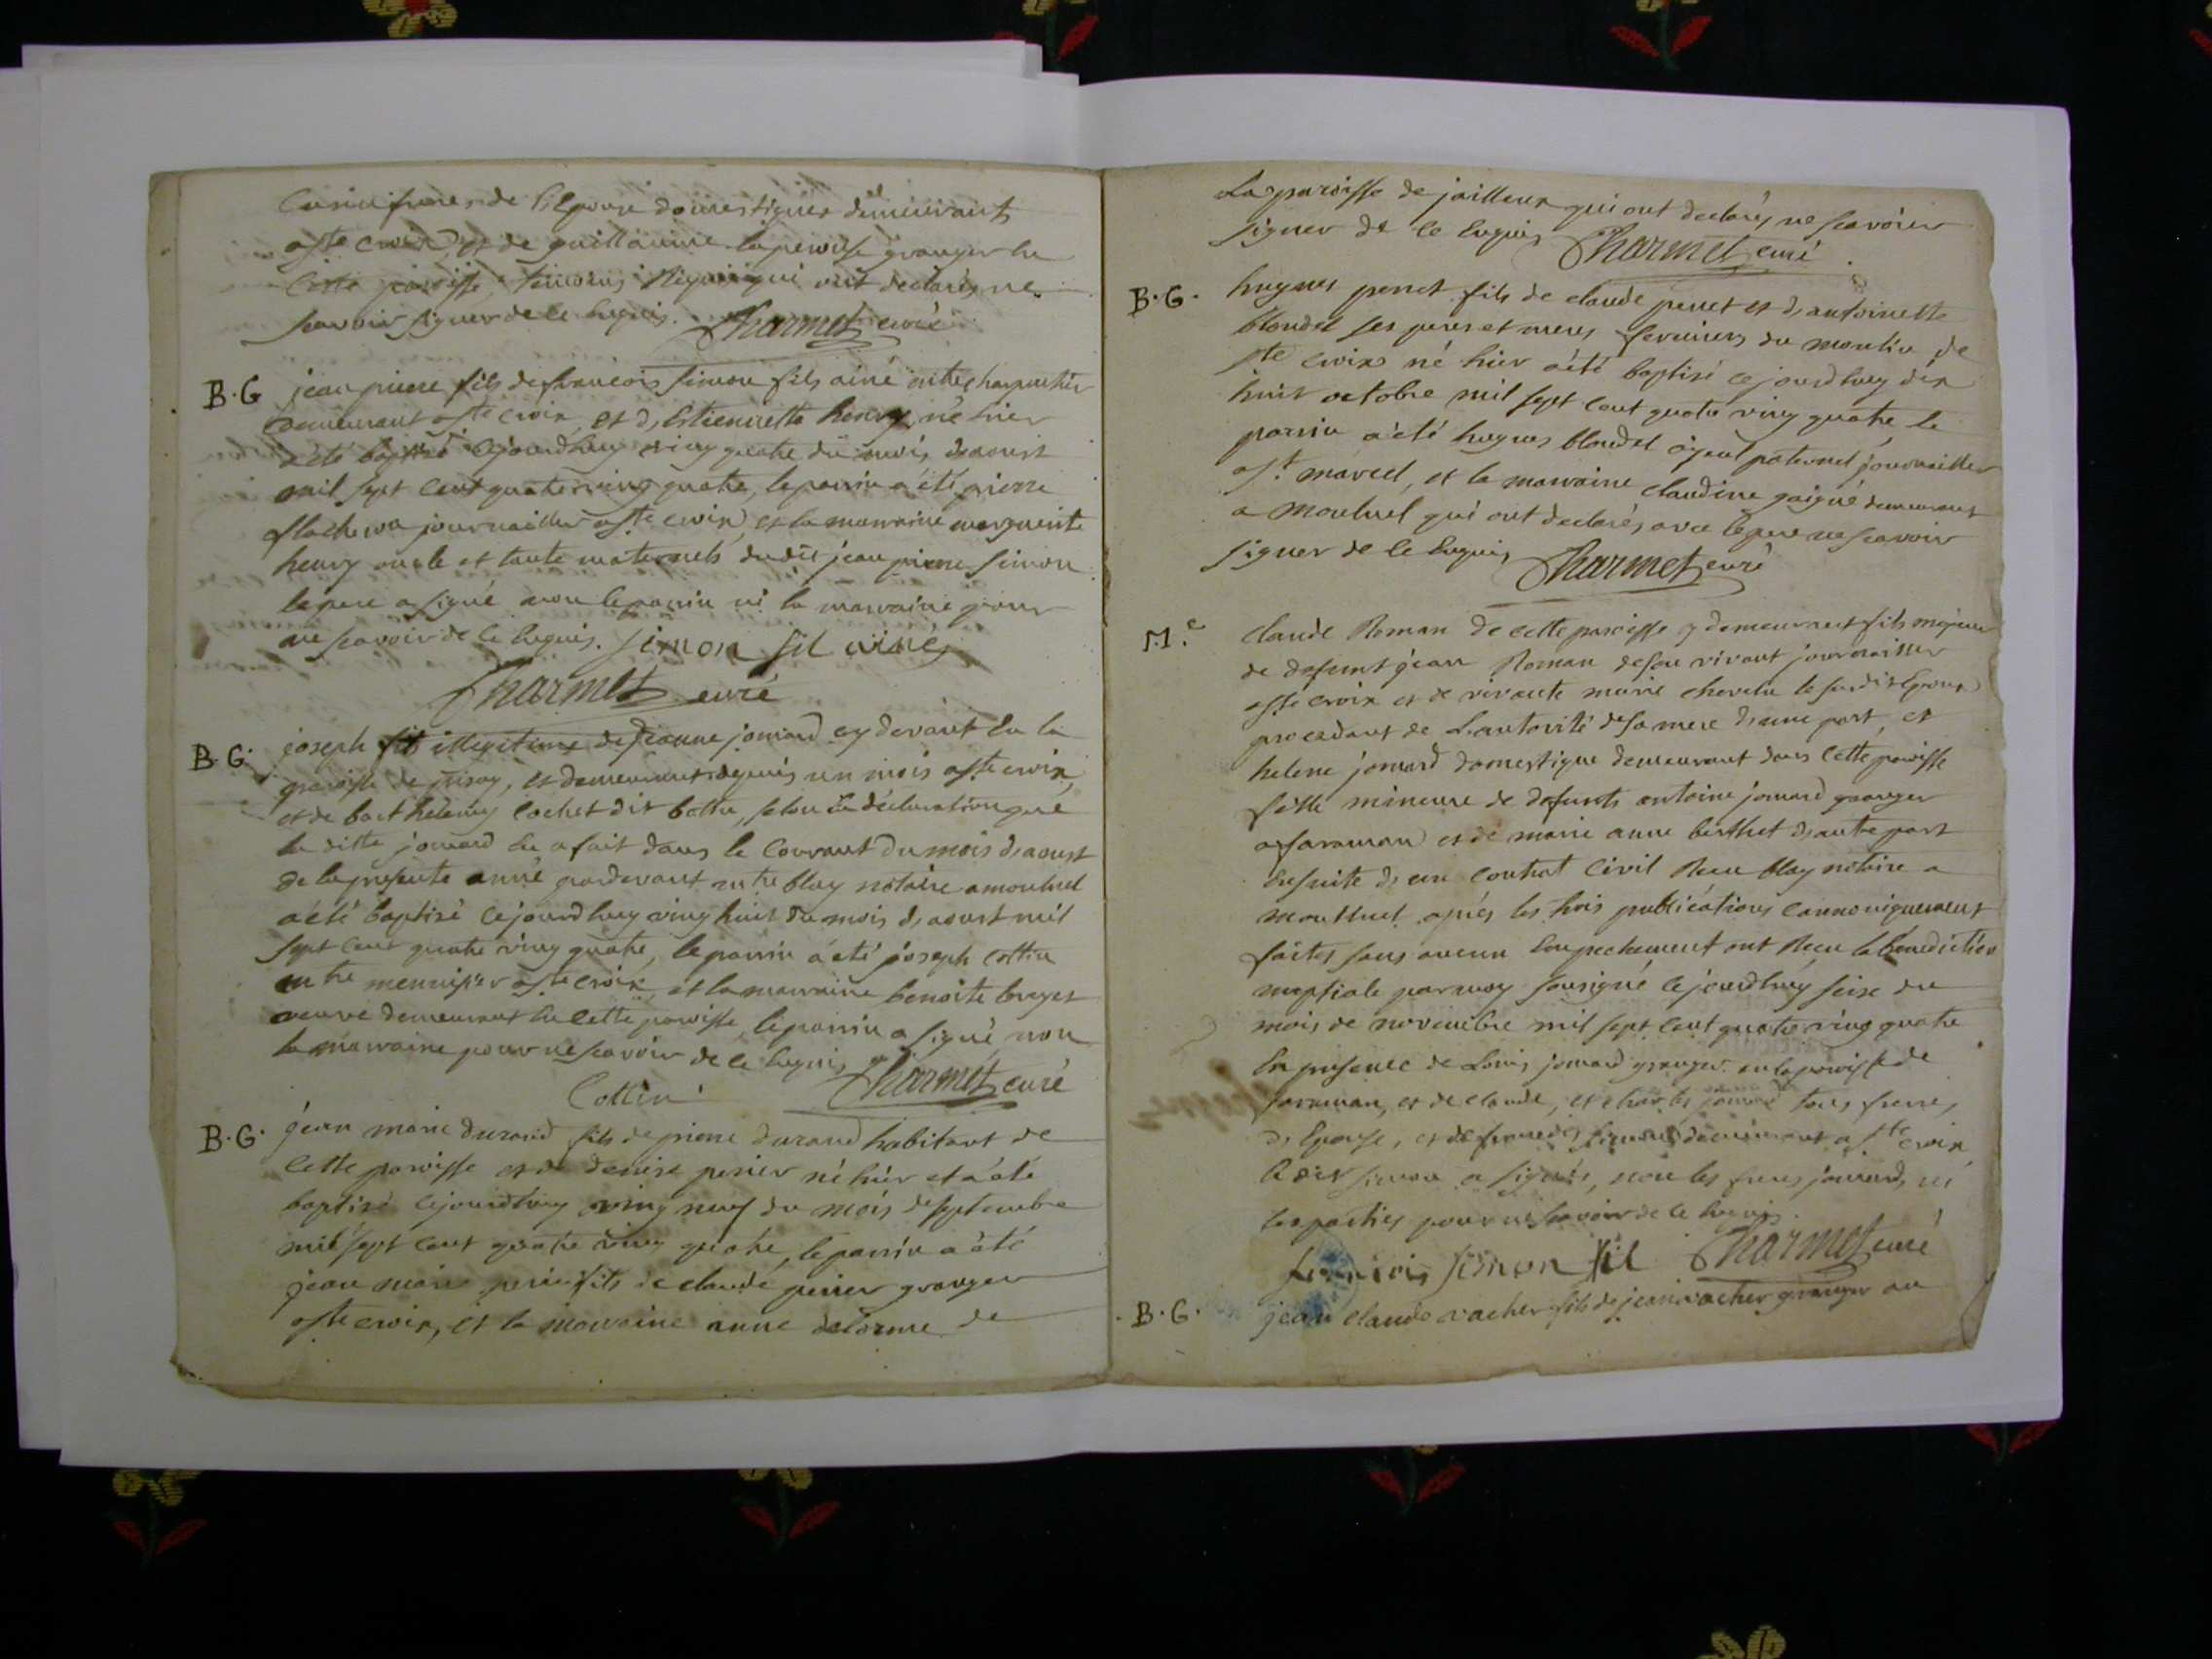 de l'Epouse domestiques demeurants
a ste croix, et de guillaume laperouse granger en
cette paroisse temoins requis qui ont declarés ne
scavoir signer de ce enquis. Charmet curé
B.G jean pierre fils de francois simon fils ainé mtre charpentier
demeurant a ste croix, et d'Estiennette henry, né hier
a été baptisé cejourdhuy vingt quatre du mois d'aoust
mil sept cent quatrevingt quatre, le parrin a été pierre
journaillier a ste croix, et la marraine marguerite
henry oncle et tante maternels dudit jean pierre simon
le pere a signé non le parrin ni la marraine pour
ne scavoir de ce enquis. simon fil ainé
Charmet curé
B.G. joseph fils illegitime de jeanne jomard cy devant en la
paroisse de prisay, et demeurant depuis un mois a ste croix,
et de barthelemy cochet dit bottu, selon la déclaration que
la ditte jomard en a fait dans le courant du mois d'aoust
de la presente anné pardevant mtre blay notaire a montluel
a été baptisé cejourdhuy vingt huit du mois d'aoust mil
sept cent quatre vingt quatre, le parrin a été joseph cottin
mtre menuisier a ste croix, et la marraine benoite
veuve demeurant en cette paroisse, le parrin a signé non
la marraine pour ne scavoir de ce enquis Charmet curé
Cottin
B.G. jean marie durand fils de pierre durand habitant de
cette paroisse et de denise perier né hier et a été
baptisé cejourdhuy vingt neuf du mois de septembre
mil sept cent quatre vingt quatre, le parrin a été
jean marie perier fils de claude perier granger
a ste croix, et la marraine anne delorme de
La paroisse de jailleux qui ont declarés ne scavoir
signer de ce enquis Charmet curé.
B.G. hugues perret fils de claude perret et d'antoinette
blondel ses peres et meres fermiers du moulin de
ste croix né hier a été baptisé cejourdhuy dix
huit octobre mil sept cent quatre vingt quatre le
parrin a été hugues blondel ayeul paternel journaillier
a st. marcel, et la marraine claudine goigné demeurant
a montluel qui ont declarés avec le pere ne scavoir
signer de ce enquis Charmet curé
M.e claude Roman de cette paroisse y demeurant fils majeur
de defunt jean Roman de son vivant journaillier
a ste croix et de vivante marie chevelu le susdit Epoux
procedant de L'autorité de sa mere d'une part, et
helene jomard domestique demeurant dans cette paroisse
fille mineure de defunts antoine jomard granger
a faraman et de marie anne berthet d'autre part
Ensuite d'un contrat civil Recu blay notaire a
montluel apiés les trois publications cannoniquement
faites sans aucun Empechement ont Recu la benediction
nuptiale par moy sousigné cejourdhuy seize du
mois de novembre mil sept cent quatre vingt quatre
En presence de Louis jomard granger en la paroisse de
faraman, et de claude, et charles jomard tous freres
d'Epouse, et de francois simon demeurant a ste croix
le dit simon a signés, non les freres jomard, ni
les parties pour ne scavoir de ce enquis.
francois simon fil Charmet curé
B.G. jean claude vacher fils de jean vacher granger au